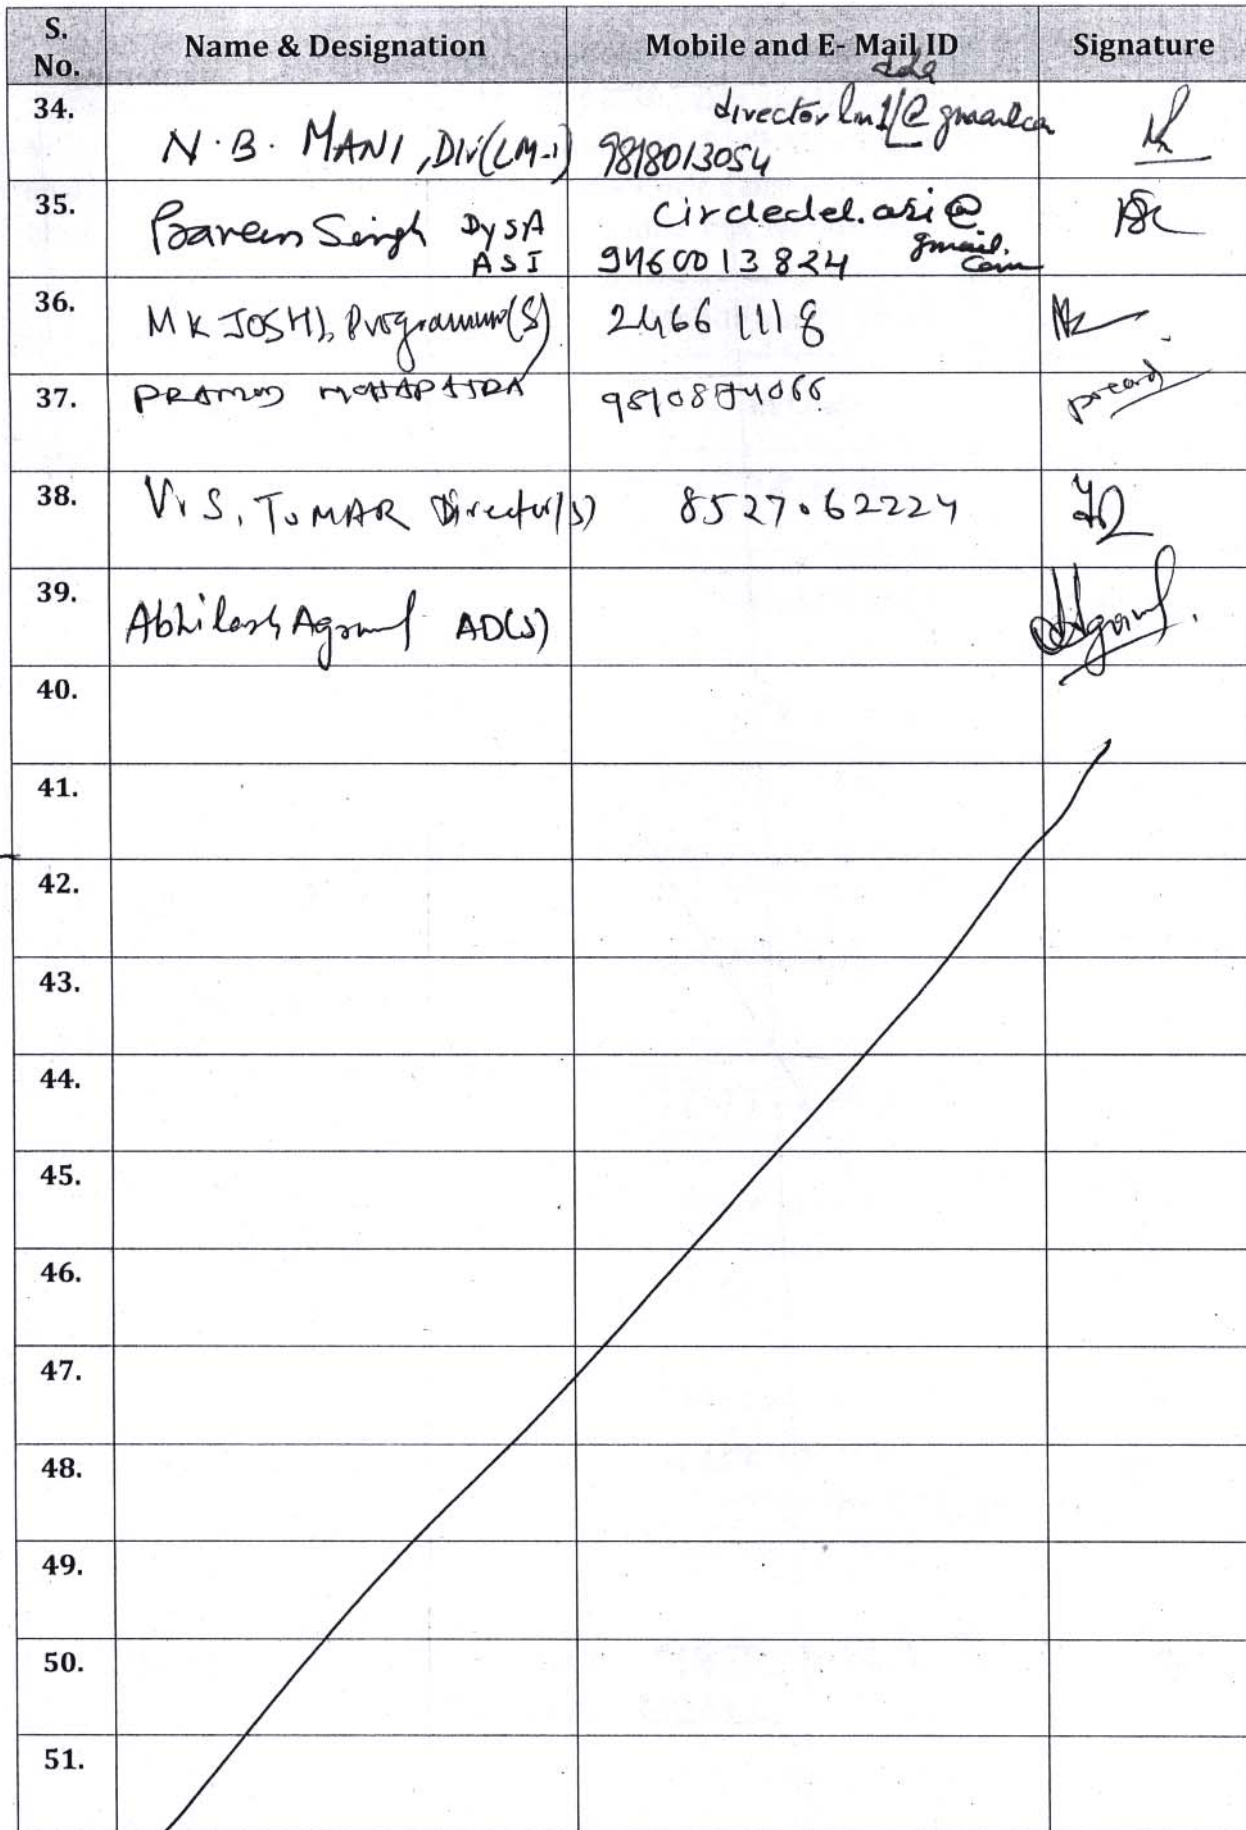 S. No. Name & Designation Mobile and E- Mail ID Signature
34. N. B. MANI, Dir(LM-1) directorlm1dda@gmail.com
9818013054
35. Praveen Singh DySA ASI circledel.asi@gmail.com
9460013824
36. M K JOSHI, Programme(S) 24661118
37. PRAMOD MOHAPATRA
38. V.S. TOMAR Director(S)
39. Abhilash Agrawal AD(S)
40.
41.
42.
43.
44.
45.
46.
47.
48.
49.
50.
51.